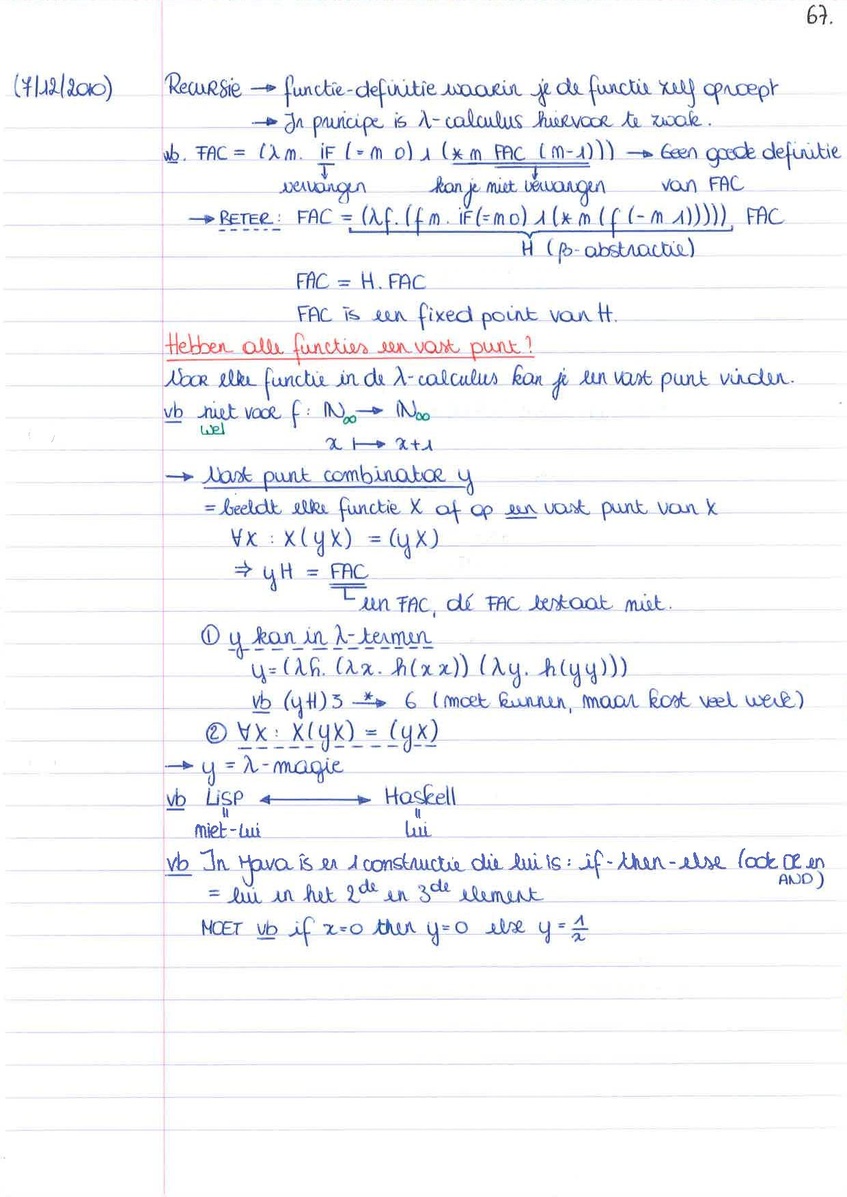 67.
(7/12/2010) Recursie → functie-definitie waarin je de functie zelf oproept
→ In principe is λ-calculus hiervoor te zwak.
vb. FAC = (λm. IF (=m 0) 1 (*m FAC (m-1))) → Geen goede definitie
vervangen kan je niet vervangen van FAC
→ BETER: FAC = (λf. (fm. IF(=m0) 1 (*m (f (-m 1))))) FAC
H (β-abstractie)
FAC = H. FAC
FAC is een fixed point van H.
Hebben alle functies een vast punt?
Voor elke functie in de λ-calculus kan je een vast punt vinden.
vb niet voor f: ℕ∞ → ℕ∞
wel
x ↦ x+1
→ Vast punt combinator y
= beeldt elke functie X af op een vast punt van X
∀X : X(yX) = (yX)
⇒ yH = FAC
een FAC, dé FAC bestaat niet.
① y kan in λ-termen
y=(λh. (λx. h(xx)) (λy. h(yy)))
vb (yH)3 *→ 6 (moet kunnen, maar kost veel werk)
② ∀X: X(yX) = (yX)
→ y = λ-magie
vb LISP ↔ Haskell
= =
niet-lui lui
vb In Java is er 1 constructie die lui is: if-then-else (ook OR en
AND)
= lui in het 2de en 3de element
MOET vb if x=0 then y=0 else y=1/x